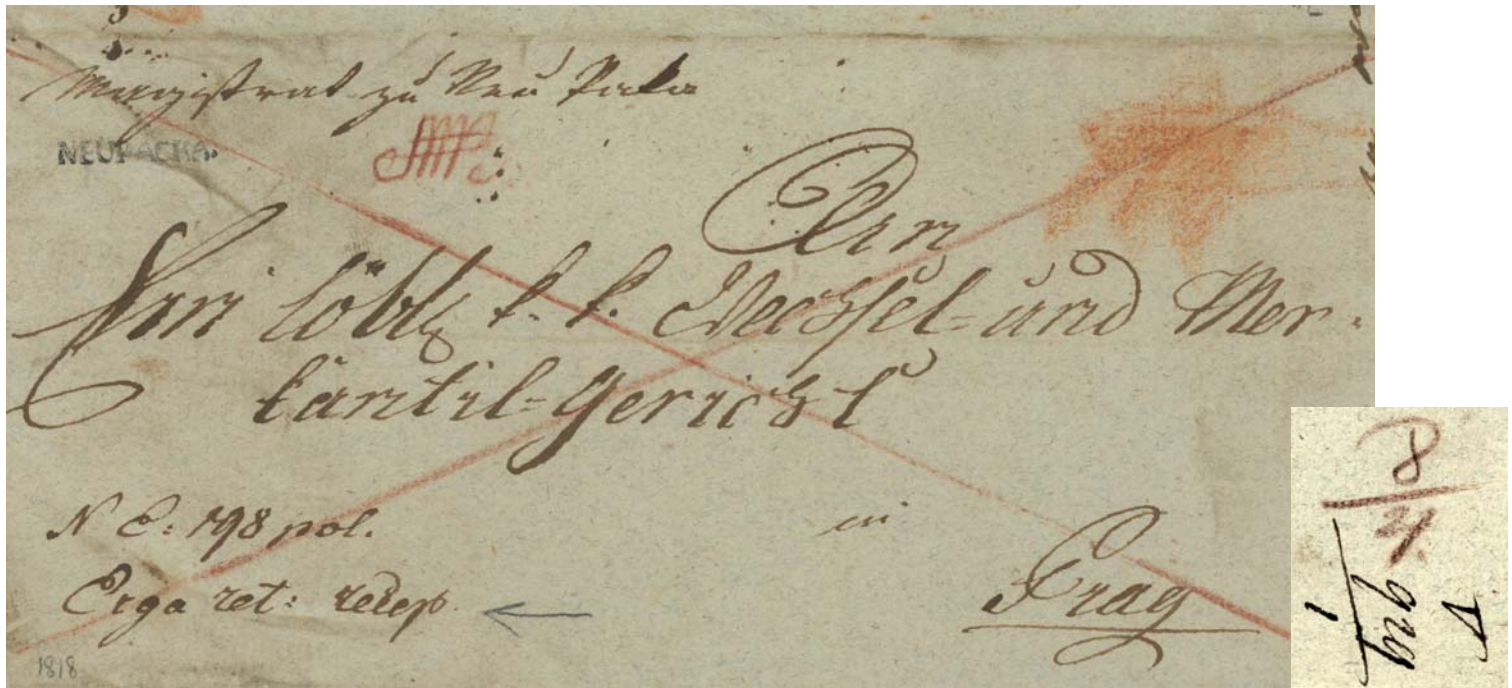 Magistrat zu Neu Paka
NEUPACKA.
Dem
Ein löbl. k. k. Wechsel- und Mer-
kantil-Gericht
N E: 798 pol.
in
Erga ret: recep.
Prag
1818